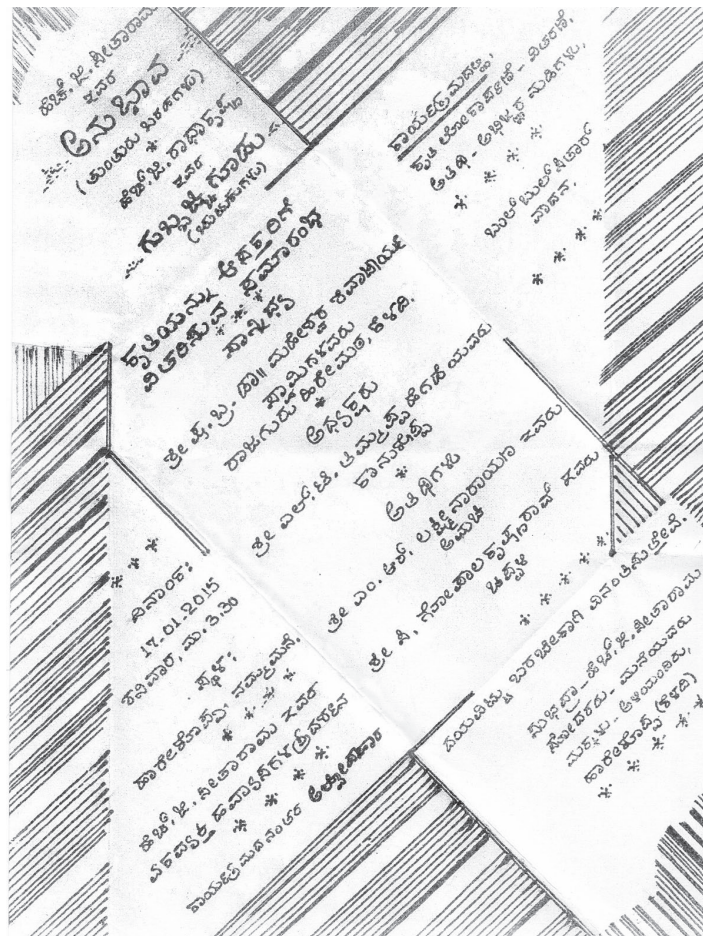 ಹೆಚ್.ಜಿ. ಸೀತಾರಾಮ
ಇವರ
ಅನುಭಾವ
(ತುಂತುರು ಬರಹಗಳು)
ಹೆಚ್.ಜಿ. ರಾಧಾಕೃಷ್ಣ
ಇವರ
ಗುಬ್ಬಚ್ಚಿ ಗೂಡು
(ಚುಟುಕುಗಳು)
ಕೃತಿಯನ್ನು ಆಪ್ತರಿಗೆ
ವಿತರಿಸುವ ಸಮಾರಂಭ
ಸಾನ್ನಿಧ್ಯ
ಶ್ರೀ ಷ. ಬ್ರ. ಡಾ॥ ಮಹೇಶ್ವರ ಶಿವಾಚಾರ್ಯ
ಸ್ವಾಮಿಗಳವರು
ರಾಜಗುರು ಹಿರೇಮಠ, ಕೆಳದಿ.
ಅಧ್ಯಕ್ಷರು
ಶ್ರೀ ಎಲ್. ಟಿ. ತಿಮ್ಮಪ್ಪ ಹೆಗಡೆಯವರು
ಅತಿಥಿಗಳು
ಶ್ರೀ ಎಂ. ಆರ್. ಲಕ್ಷ್ಮೀನಾರಾಯಣ ಇವರು
ಶ್ರೀ ಪಿ. ಗೋಪಾಲಕೃಷ್ಣರಾವ್ ಇವರು
ಚಿಪ್ಪಳಿ
ಕಾರ್ಯಕ್ರಮದಲ್ಲಿ,
ಕೃತಿ ಲೋಕಾರ್ಪಣೆ - ವಿತರಣೆ,
ಅತಿಥಿ - ಅಧ್ಯಕ್ಷರ ನುಡಿಗಳು,
ಬುಲ್ ಬುಲ್ ಸಿತಾರ್
ವಾದನ.
ದಿನಾಂಕ:
17.01.2015
ಶನಿವಾರ, ಮ. 3.30
ಸ್ಥಳ:
ಹಾರೇಕೊಪ್ಪ, ನಮ್ಮ ಮನೆ.
ಹೆಚ್.ಜಿ. ಸೀತಾರಾಮ ಇವರ
ಏಕವ್ಯಕ್ತಿ ಹವ್ಯಾಸಗಳ ಪ್ರದರ್ಶನ
ಕಾರ್ಯಕ್ರಮದ ನಂತರ ಲಘೋಪಹಾರ
ದಯವಿಟ್ಟು ಬರಬೇಕಾಗಿ ವಿನಂತಿಸುತ್ತೇವೆ.
ಸುಭದ್ರಾ - ಹೆಚ್.ಜಿ. ಸೀತಾರಾಮ
ಸೋದರರು - ಮನೆಯವರು
ಮಕ್ಕಳು - ಅಳಿಯಂದಿರು,
ಹಾರೇಕೊಪ್ಪ (ಕೆಳದಿ)